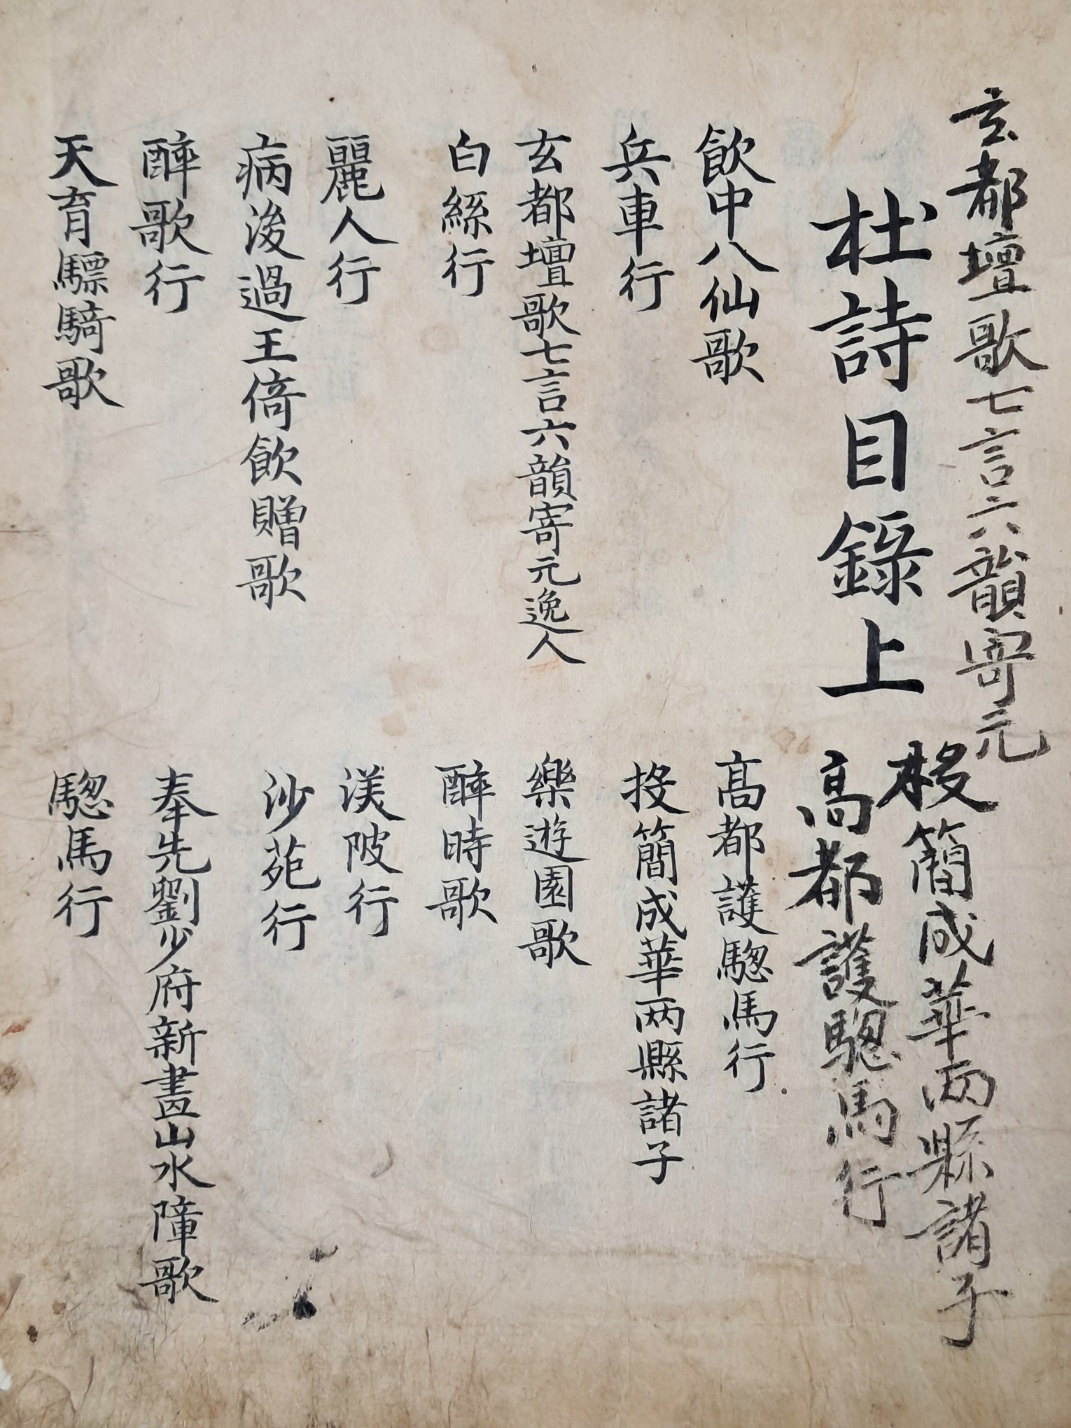 玄都壇歌七言六韻寄元
投簡成華两縣諸子
杜詩目錄上
高都護驄馬行
飮中八仙歌
髙都護驄馬行
兵車行
投簡成華两縣諸子
玄都壇歌七言六韻寄元逸人
樂遊園歌
白絲行
醉時歌
麗人行
渼陂行
病後過王倚飮贈歌
沙苑行
醉歌行
奉先劉少府新畫山水障歌
天育驃騎歌
驄馬行